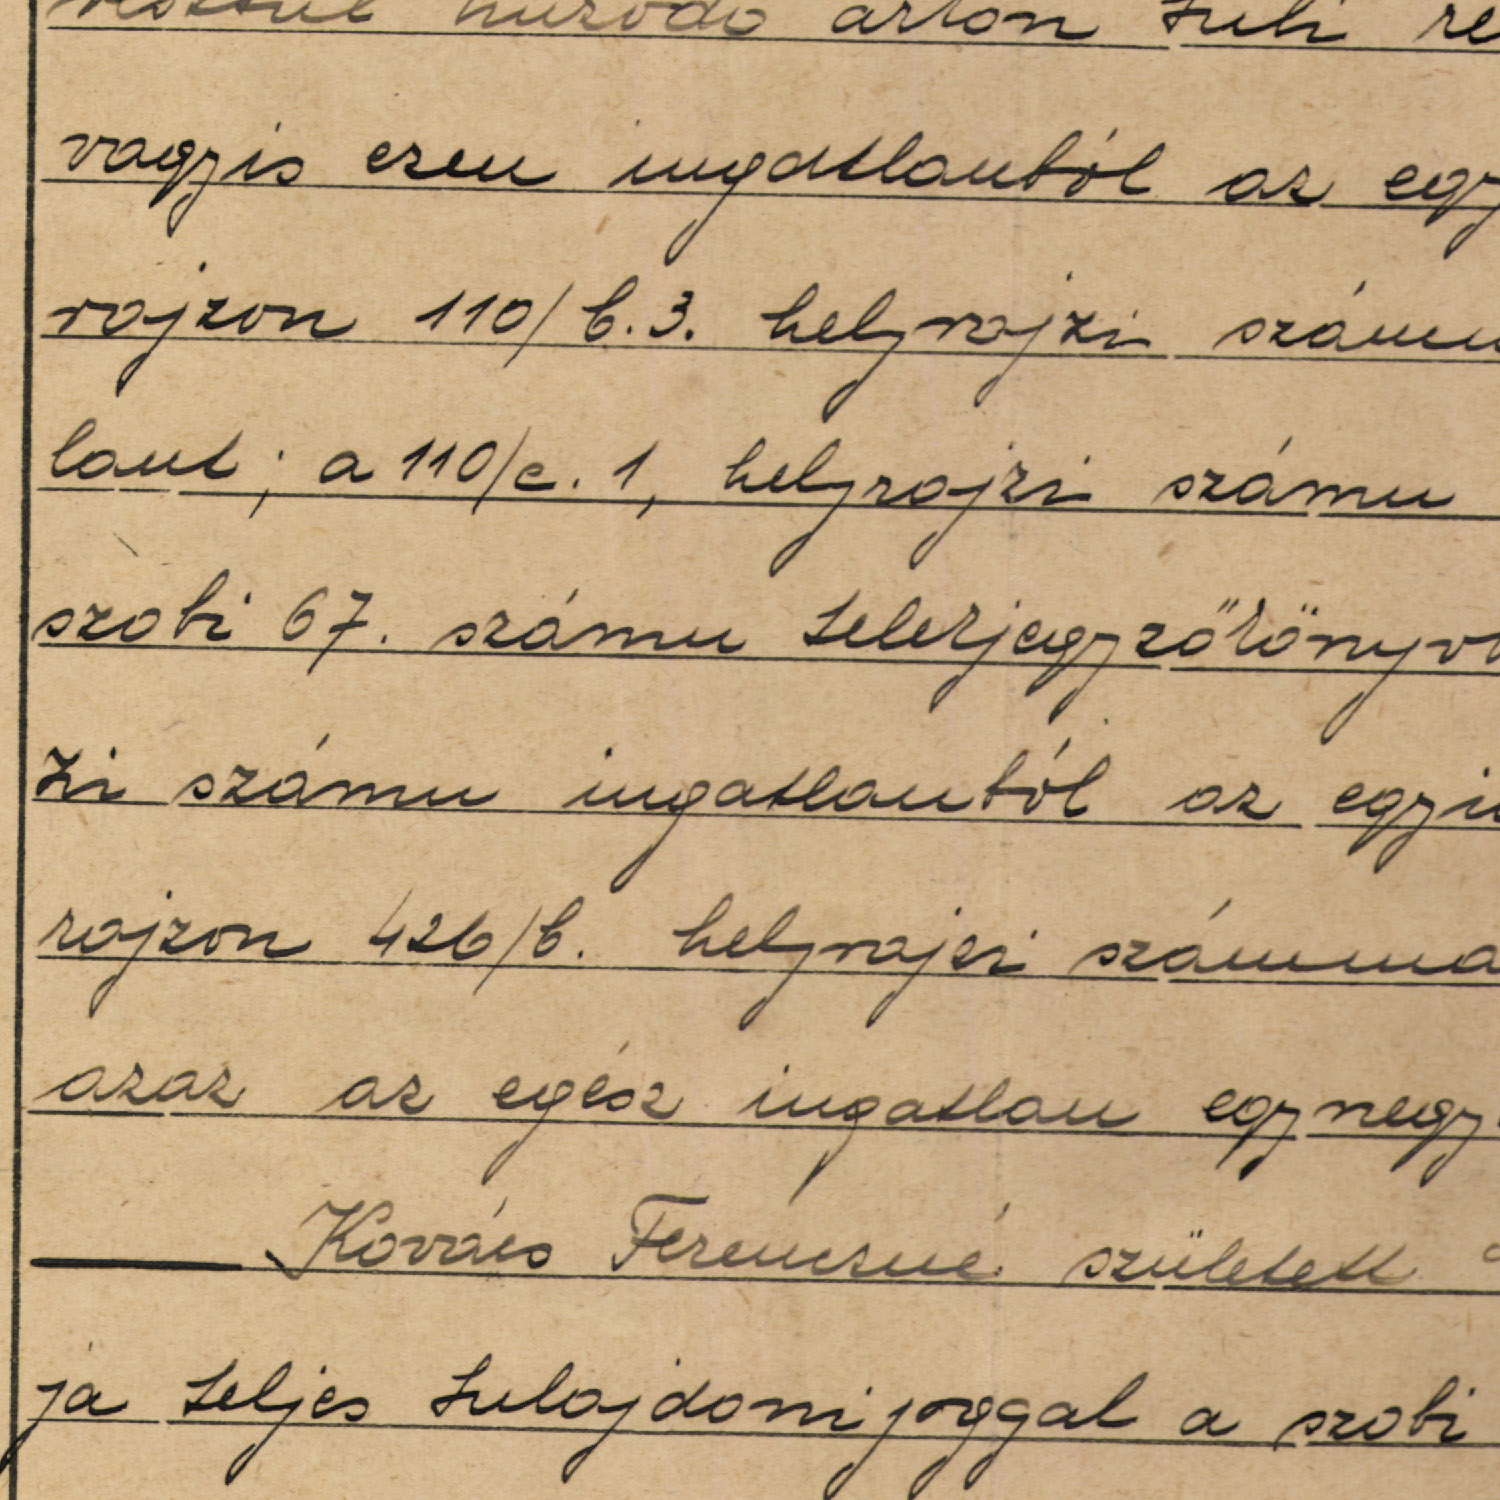 húzódó árkon tuli
vagyis ezen ingatlanból az egy
rajzon 110/b.3. helyrajzi számu
lant; a 110/c. 1, helyrajzi számu
szobi 67. számu telekjegyzőkönyvb
zi számu ingatlanból az egyi
rajzon 426/b. helyrajzi számma
azaz az egész ingatlan egynegy
Kovács Ferencné született
ja teljes tulajdonijoggal a szobi